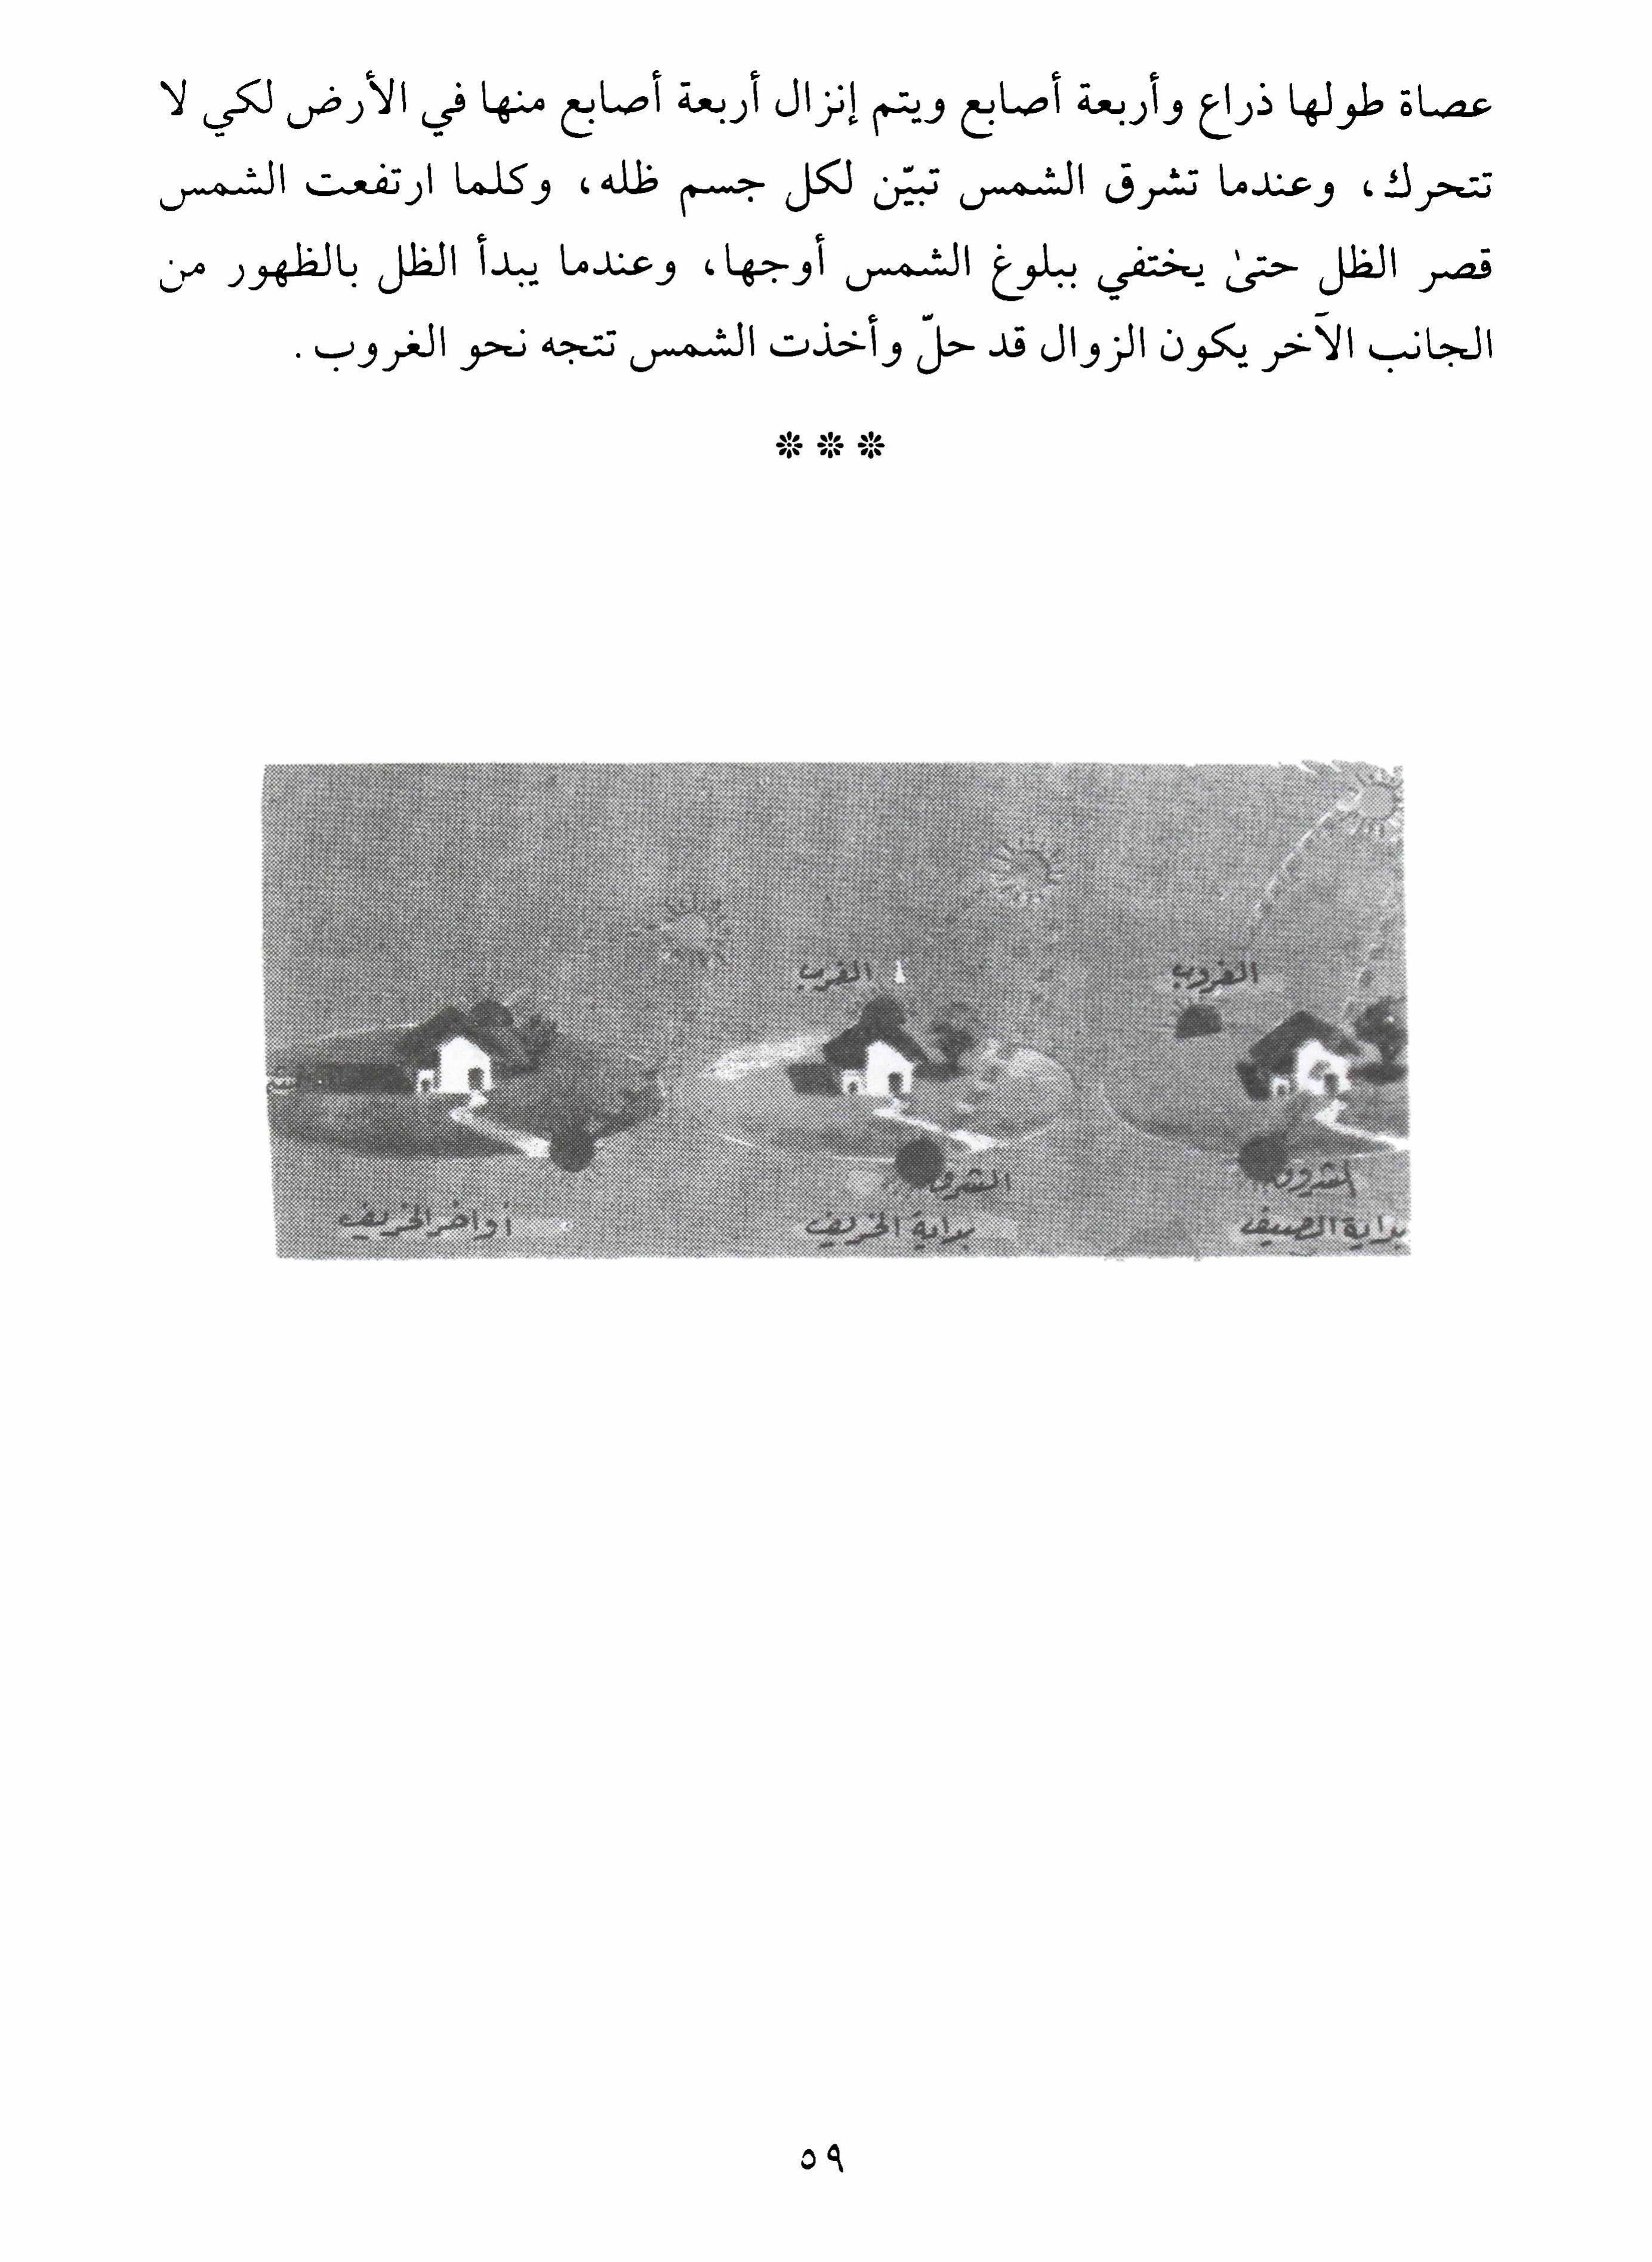 عصاة طولها ذراع وأربعة أصابع ويتم إنزال أربعة أصابع منها في الأرض لكي لا
تتحرك، وعندما تشرق الشمس تبيّن لكل جسم ظله، وكلما ارتفعت الشمس
قصر الظل حتىٰ يختفي ببلوغ الشمس أوجها، وعندما يبدأ الظل بالظهور من
الجانب الآخر يكون الزوال قد حلّ وأخذت الشمس تتجه نحو الغروب.
***
الغروب
الغرب
لشروق
الشرق
بداية الصيف
بداية الخريف
أواخر الخريف
٥٩